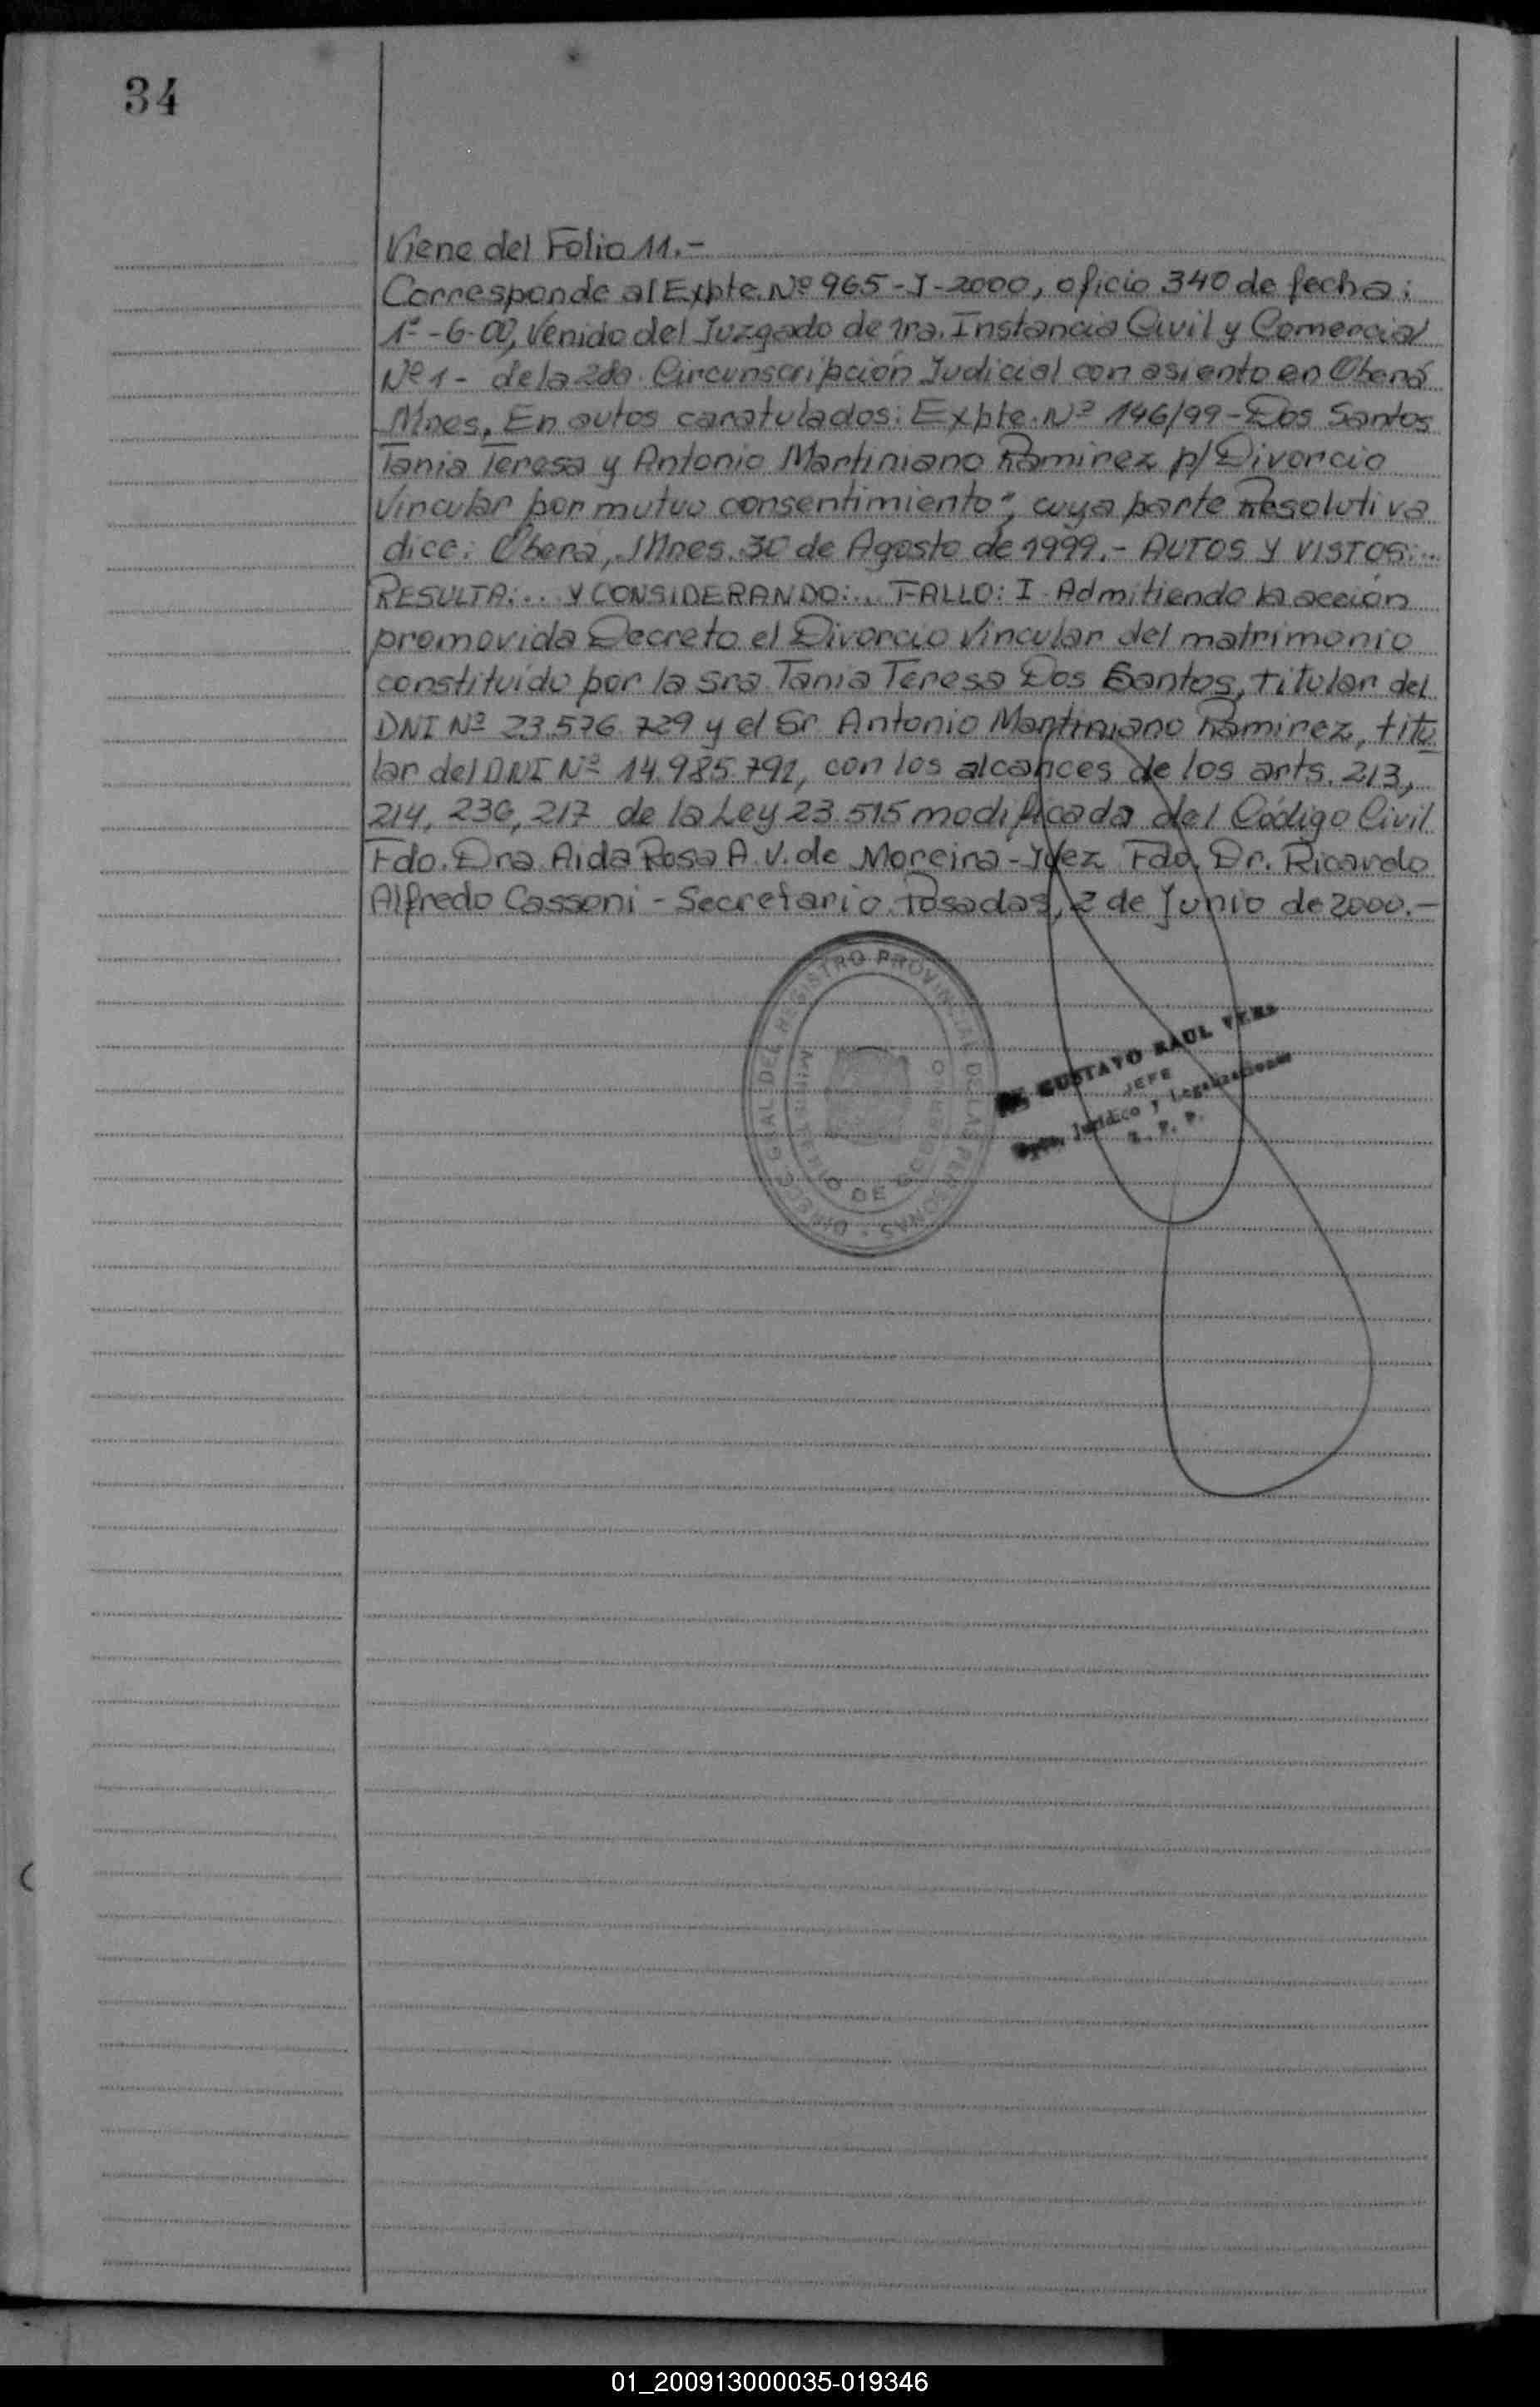 34
Viene del Folio 11.-
Corresponde al Expte. Nº 965-J-2000, oficio 340 de fecha:
1º-6-00, Venido del Juzgado de 1ra. Instancia Civil y Comercial
Nº 1- de la 2da. Circunscripción Judicial con asiento en Oberá
Mnes. En autos caratulados: Expte. Nº 146/99-Dos Santos
Tania Teresa y Antonio Martiniano Ramirez p/ Divorcio
Vincular por mutuo consentimiento", cuya parte Resolutiva
dice: Oberá, Mnes. 30 de Agosto de 1999.- AUTOS Y VISTOS:...
RESULTA:... Y CONSIDERANDO:... FALLO: I. Admitiendo la acción
promovida Decreto el Divorcio Vincular del matrimonio
constituído por la Sra. Tania Teresa Dos Santos, titular del
DNI Nº 23.576.729 y el Sr Antonio Martiniano Ramirez, titu
lar del DNI Nº 14.985.792, con los alcances de los arts. 213,
214, 236, 217 de la Ley 23.515 modificada del Código Civil
Fdo. Dra. Aida Rosa A. V. de Moreira-Juez Fdo. Dr. Ricardo
Alfredo Cassoni - Secretario. Posadas, 2 de Junio de 2000.-
DIREC. GRAL DEL REGISTRO PROVINCIAL DE LAS PERSONAS
MINISTERIO DE GOBIERNO
GUSTAVO RAUL VERA
JEFE
Dpto. Jurídico y Legalizaciones
R. P. P.
01_200913000035-019346